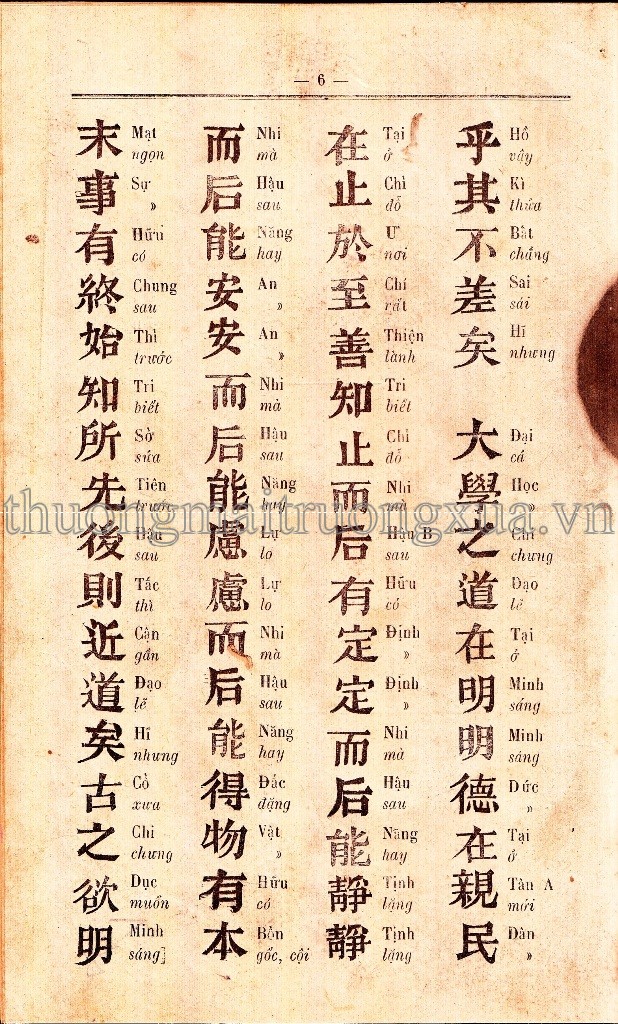 — 6 —
乎其不差矣 大學之道在明明德在親民
Hồ
vậy
Kì
thửa
Bất
chẳng
Sai
sái
Hĩ
nhưng
Đại
cả
Học
»
Chi
chưng
Đạo
lẽ
Tại
ở
Minh
sáng
Minh
sáng
Đức
»
Tại
ở
Tân A
mới
Dân
»
在止於至善知止而后有定定而后能靜靜
Tại
ở
Chỉ
đỗ
Ư
nơi
Chí
rất
Thiện
lành
Tri
biết
Chỉ
đỗ
Nhi
mà
Hậu B
sau
Hữu
có
Định
»
Định
»
Nhi
mà
Hậu
sau
Năng
hay
Tịnh
lặng
Tịnh
lặng
而后能安安而后能慮慮而后能得物有本
Nhi
mà
Hậu
sau
Năng
hay
An
»
An
»
Nhi
mà
Hậu
sau
Năng
hay
Lự
lo
Lự
lo
Nhi
mà
Hậu
sau
Năng
hay
Đắc
đặng
Vật
»
Hữu
có
Bổn
gốc, cội
末事有終始知所先後則近道矣古之欲明
Mạt
ngọn
Sự
»
Hữu
có
Chung
sau
Thỉ
trước
Tri
biết
Sở
sửa
Tiên
trước
Hậu
sau
Tắc
thì
Cận
gần
Đạo
lẽ
Hĩ
nhưng
Cổ
xưa
Chi
chưng
Dục
muốn
Minh
sáng]
thuongmaitruongxua.vn